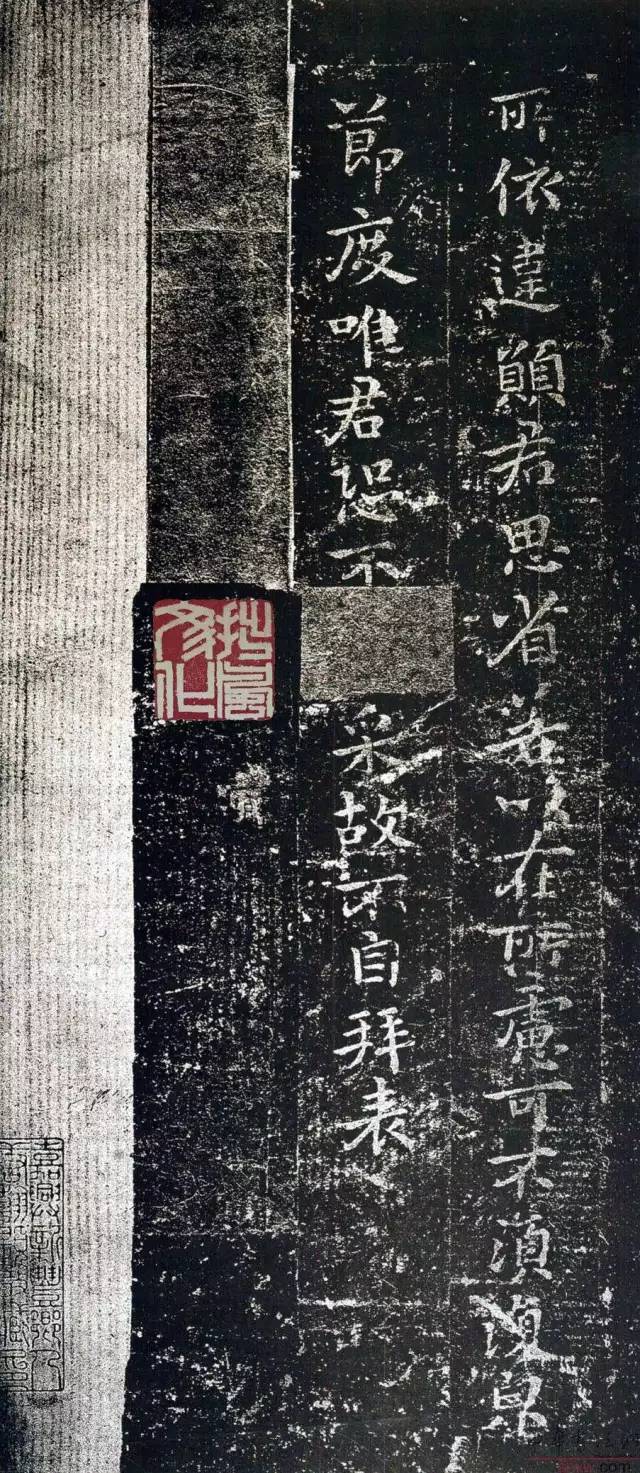 所依違願君思省若以在所慮可不須復皃
節度唯君恐不采故不自拜表
拙風文化